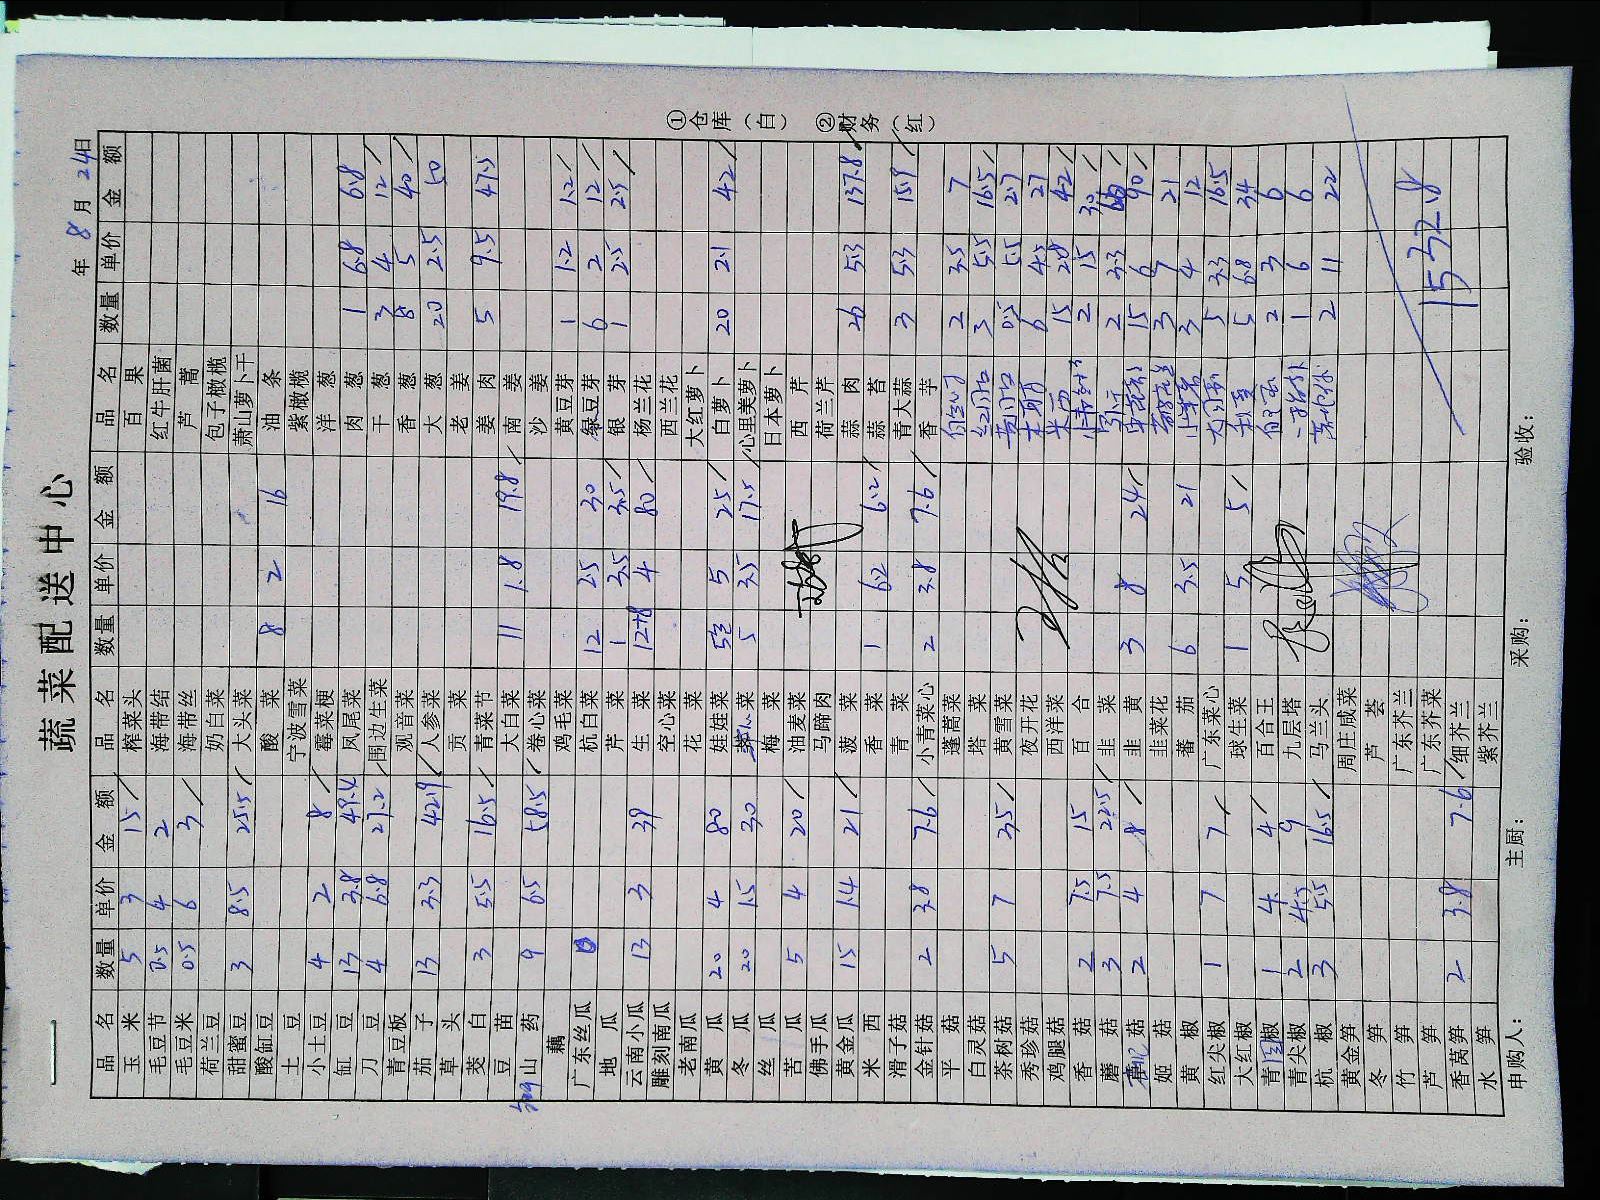 蔬菜配送中心
年 8 月 24 日
品名 数量 单价 金额 品名 数量 单价 金额 品名 数量 单价 金额
玉米 5 3 15 榨菜头 百果
毛豆节 0.5 4 2 海带结 红牛肝菌
毛豆米 0.5 6 3 海带丝 芦蒿
荷兰豆 奶白菜 包子橄榄
甜蜜豆 3 8.5 25.5 大头菜 萧山萝卜干
酸缸豆 酸菜 8 2 16 油条
土豆 宁波雪菜 紫橄榄
小土豆 4 2 8 霉菜梗 洋葱
缸豆 13 3.8 49.4 凤尾菜 肉葱 1 6.8 6.8
刀豆 4 6.8 27.2 围边生菜 干葱 3 4 12
青豆板 观音菜 香葱 8 5 40
茄子 13 3.3 42.9 人参菜 大葱 20 2.5 50
草头 贡菜 老姜
茭白 3 5.5 16.5 青菜节 姜肉 5 9.5 47.5
豆苗 大白菜 11 1.8 19.8 南姜
山药 9 6.5 58.5 卷心菜 沙姜
藕 鸡毛菜 黄豆芽 1 1.2 1.2
广东丝瓜 杭白菜 12 2.5 30 绿豆芽 6 2 12
地瓜 芹菜 1 3.5 3.5 银芽 1 2.5 2.5
云南小瓜 13 3 39 生菜 12+8 4 80 杨兰花
雕刻南瓜 空心菜 西兰花
老南瓜 花菜 大红萝卜
黄瓜 20 4 80 娃娃菜 5 25 白萝卜 20 2.1 42
冬瓜 20 1.5 30 菜 5 3.5 17.5 心里美萝卜
丝瓜 梅菜 日本萝卜
苦瓜 5 4 20 油麦菜 西芹
佛手瓜 马蹄肉 荷兰芹
黄金瓜 15 1.4 21 菠菜 蒜肉 26 5.3 137.8
米西 香菜 1 6.2 6.2 蒜苔
滑子菇 青菜 青大蒜 3 5.3 15.9
金针菇 2 3.8 7.6 小青菜心 2 3.8 7.6 香芋
平菇 蓬蒿菜 2 3.5 7
白灵菇 塔菜 3 5.5 16.5
茶树菇 5 7 35 黄雪菜 0.5 5.5 2.7
秀珍菇 夜开花 6 4.5 27
鸡腿菇 西洋菜 15 2.8 42
香菇 2 7.5 15 百合 2 15 30
蘑菇 3 7.5 22.5 韭菜 2 3.3
菇 2 4 8 韭黄 3 8 24 15 6 90
姬菇 韭菜花 3 7 21
黄椒 蕃茄 6 3.5 21 3 4 12
红尖椒 1 7 7 广东菜心 5 3.3 16.5
大红椒 球生菜 1 5 5 5 6.8 34
青圆椒 1 4 4 百合王 2 3 6
青尖椒 2 4.5 9 九层塔 1 6 6
杭椒 3 5.5 16.5 马兰头 2 11 22
黄金笋 周庄咸菜
冬笋 芦荟
竹笋 广东芥兰
芦笋 广东芥菜 1532.8
香莴笋 2 3.8 7.6 细芥兰
水笋 紫芥兰
申购人： 主厨： 采购： 验收：
①仓库（白） ②财务（红）